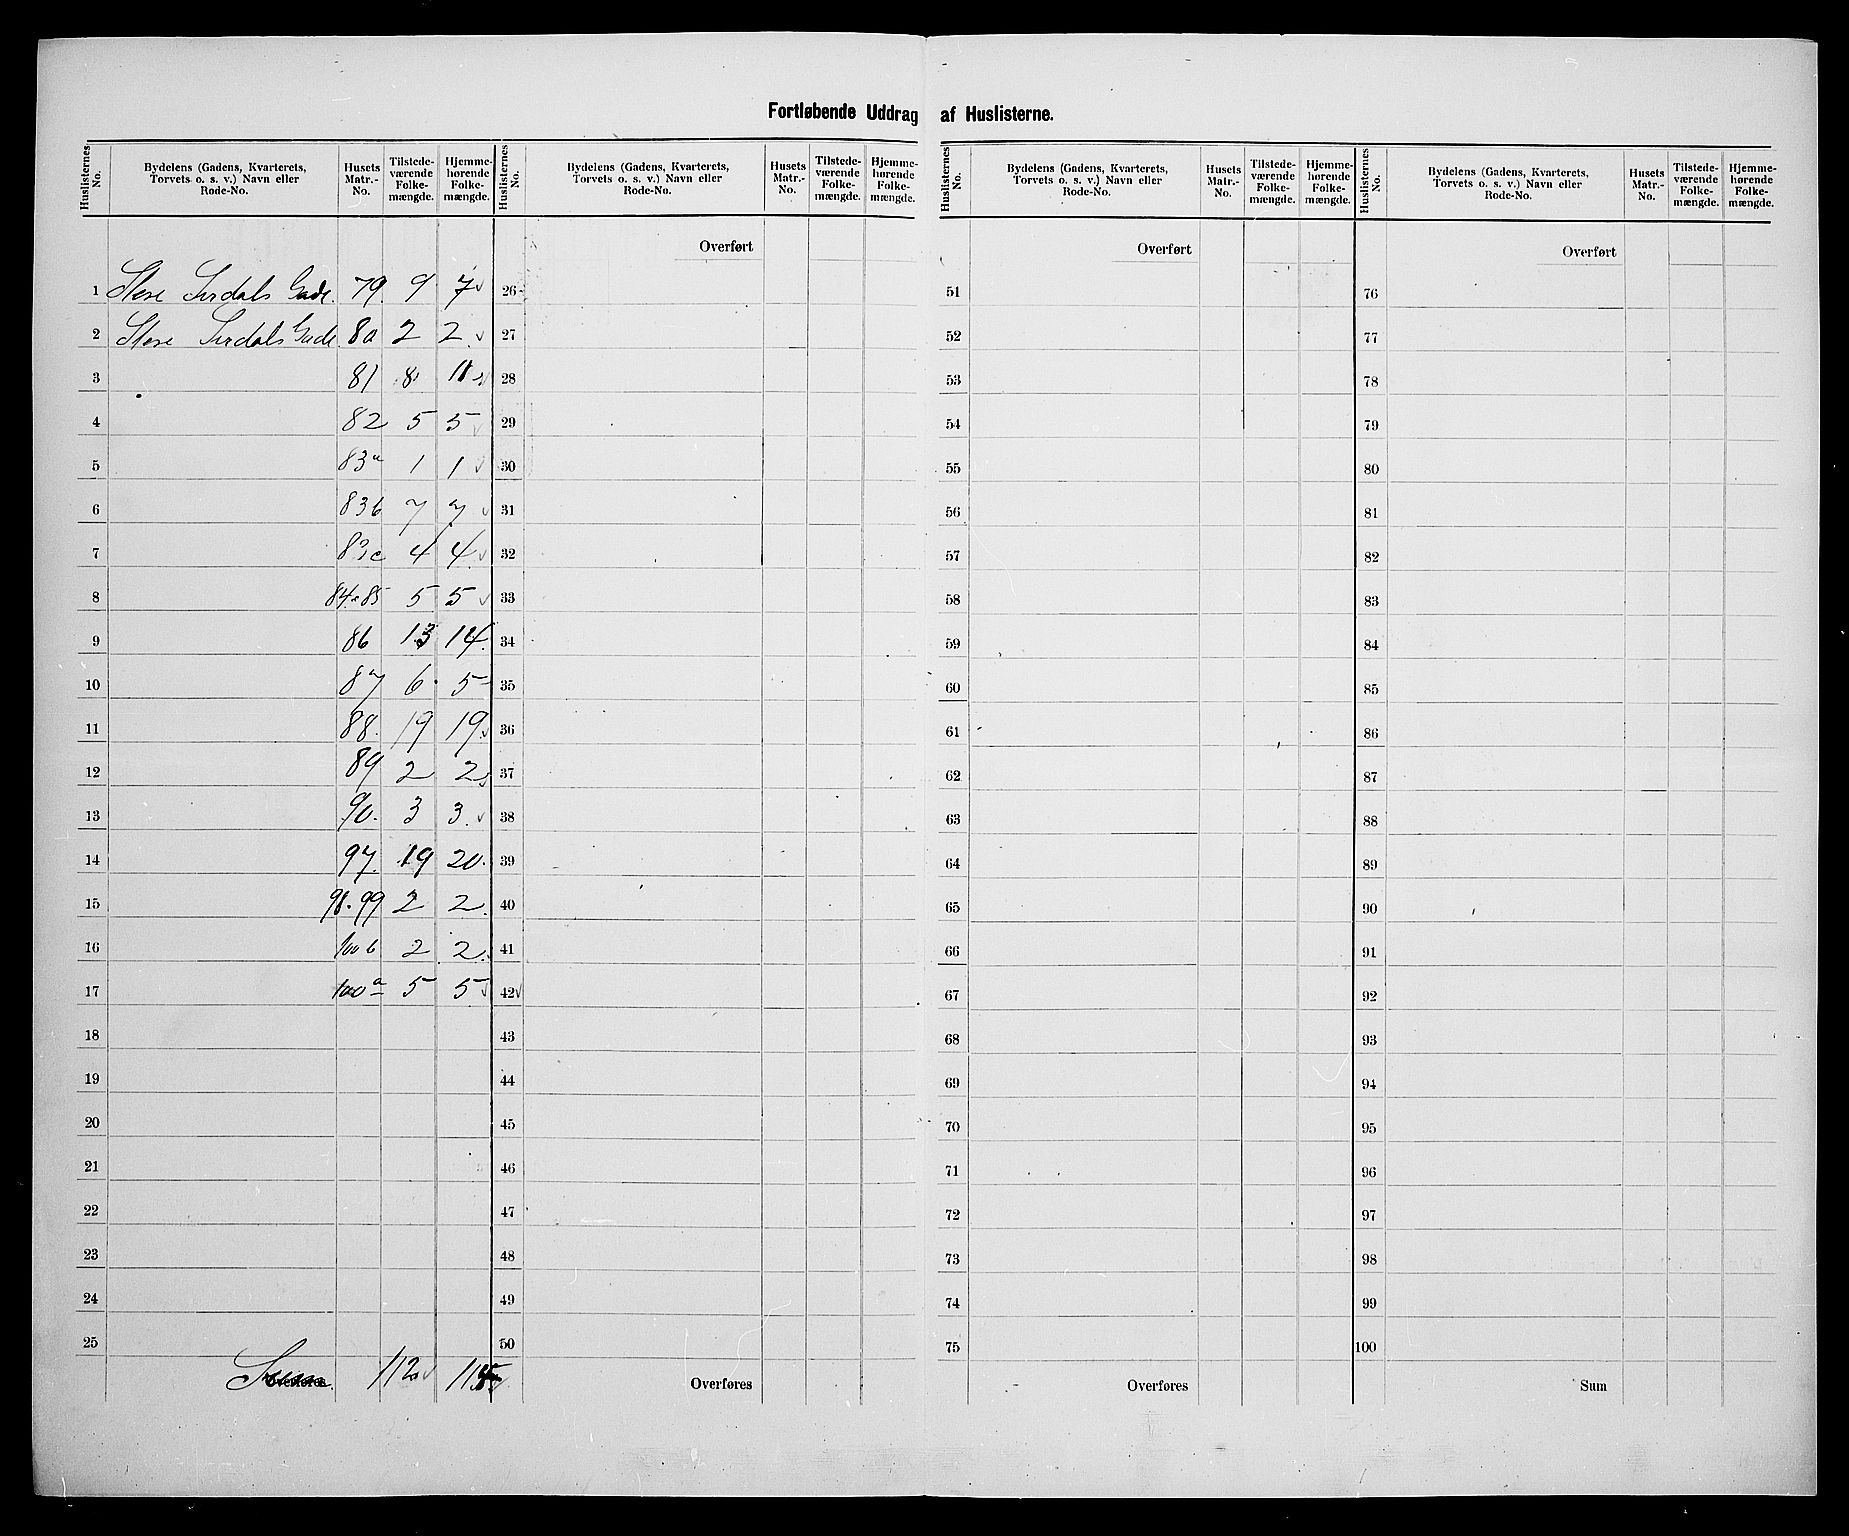 Fortløbende Uddrag af Huslisterne.
Huslisternes No. | Bydelens (Gadens, Kvarterets, Torvets o. s. v.) Navn eller Rode-No. | Husets Matr.-No. | Tilstedeværende Folkemængde. | Hjemmehørende Folkemængde.
1 Store Lirdals Gade. 79. 9 7
2 Store Lirdals Gade. 80 2 2
3 81 8 11
4 82 5 5
5 83a 1 1
6 83b 7 7
7 83c 4 4
8 84-85 5 5
9 86 13 14
10 87 6 5
11 88. 19 19
12 89 2 2
13 90. 3 3
14 97. 19 20
15 98-99 2 2
16 100b 2 2
17 100a 5 5
18
19
20
21
22
23
24
25
Sum 112
Huslisternes No. | Bydelens (Gadens, Kvarterets, Torvets o. s. v.) Navn eller Rode-No. | Husets Matr.-No. | Tilstedeværende Folkemængde. | Hjemmehørende Folkemængde.
Overført
26
27
28
29
30
31
32
33
34
35
36
37
38
39
40
41
42
43
44
45
46
47
48
49
50
Overføres
Huslisternes No. | Bydelens (Gadens, Kvarterets, Torvets o. s. v.) Navn eller Rode-No. | Husets Matr.-No. | Tilstedeværende Folkemængde. | Hjemmehørende Folkemængde.
Overført
51
52
53
54
55
56
57
58
59
60
61
62
63
64
65
66
67
68
69
70
71
72
73
74
75
Overføres
Huslisternes No. | Bydelens (Gadens, Kvarterets, Torvets o. s. v.) Navn eller Rode-No. | Husets Matr.-No. | Tilstedeværende Folkemængde. | Hjemmehørende Folkemængde.
Overført
76
77
78
79
80
81
82
83
84
85
86
87
88
89
90
91
92
93
94
95
96
97
98
99
100
Sum